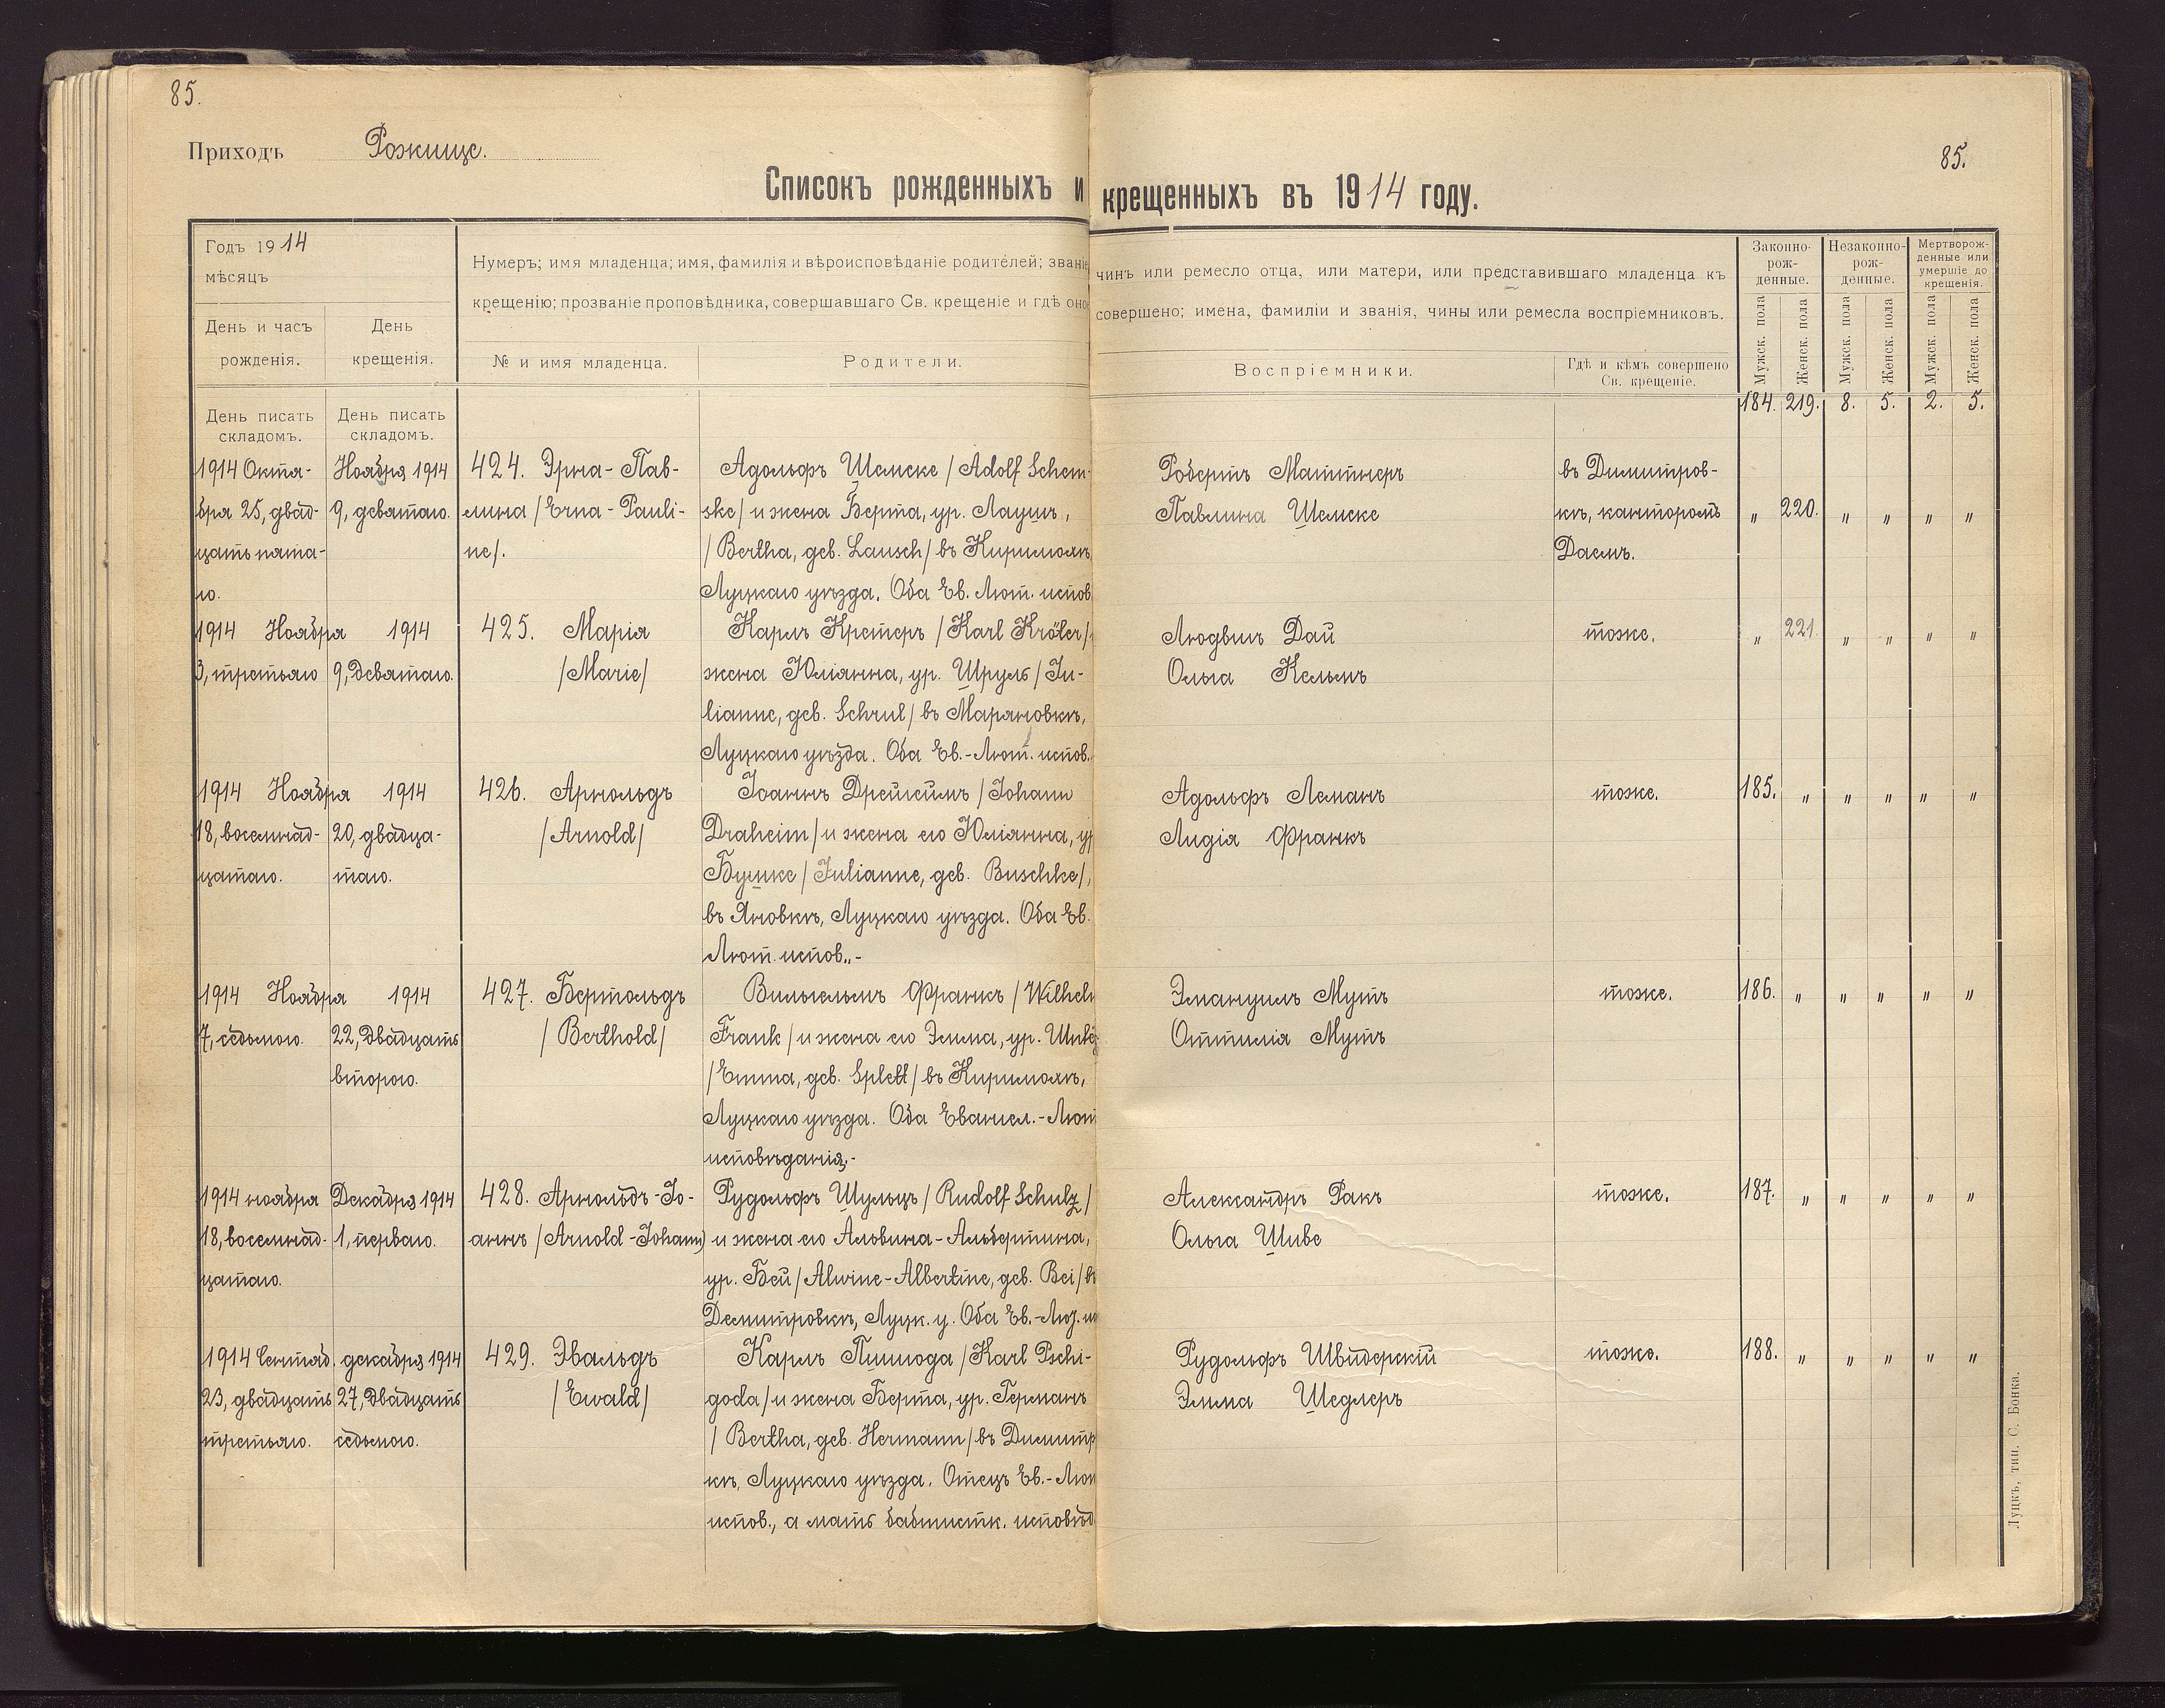 85.
85.
Приходъ Рожище.
Списокъ рожденныхъ и крещенныхъ въ 1914 году.
Годъ 1914
мѣсяцъ
День и часъ
рожденія.
День
крещенія.
Нумеръ; имя младенца; имя, фамилія и вѣроисповѣданіе родителей; званіе чинъ или ремесло отца, или матери, или представившаго младенца къ
крещенію; прозваніе проповѣдника, совершавшаго Св. крещеніе и гдѣ оно совершено; имена, фамиліи и званія, чины или ремесла воспріемниковъ.
№ и имя младенца.
Родители.
Воспріемники.
Гдѣ и кѣмъ совершено
Св. крещеніе.
Законно-
рож-
денные.
Незаконно-
рож-
денные.
Мертворож-
денные или
умершіе до
крещенія.
Мужск. пола
Женск. пола
Мужск. пола
Женск. пола
Мужск. пола
Женск. пола
День писать
складомъ.
День писать
складомъ.
184. 219. 8. 5. 2. 5.
1914 Октя-
бря 25, двад-
цать пята-
го.
Ноября 1914
9, девятаго.
424. Эрна-Пав-
лина /Erna-Pauli-
ne/.
Адольфъ Шемске /Adolf Schem-
ske/ и жена Берта, ур. Лаушъ,
/Bertha, geb. Lausch/ въ Киримолкѣ,
Луцкаго уѣзда. Оба Ев. Лют. испов
Робертъ Маттнеръ
Павлина Шемске
въ Димитров-
кѣ, канторомъ
Даемъ.
„ 220. „ „ „ „
1914 Ноября 1914
3, третьяго
9, девятаго.
425. Марія
/Marie/
Карлъ Кретеръ /Karl Kröter/
жена Юліянна, ур. Шруль /Ju-
lianne, geb. Schrul/ въ Маряновкѣ,
Луцкаго уѣзда. Оба Ев.-Лют. испов.
Людвигъ Дай
Ольга Кельмъ
тоже.
„ 221. „ „ „ „
1914 Ноября 1914
18, восемнад-
цатаго.
20, двадца-
таго.
426. Арнольдъ
/Arnold/
Іоаннъ Дрейгеймъ /Johann
Draheim/ и жена его Юліянна, ур
Бушке /Julianne, geb. Buschke/,
въ Яновкѣ, Луцкаго уѣзда. Оба Ев.
Лют. испов.-
Адольфъ Леманъ
Лидія Франкъ
тоже.
185. „ „ „ „ „
1914 Ноября 1914
7, седьмого.
22, двадцать
второго.
427. Бертольдъ
/Berthold/
Вильгельмъ Франкъ /Wilhelm
Frank/ и жена его Эмма, ур.
/Emma, geb. Splett/ въ Киримолкѣ,
Луцкаго уѣзда. Оба Евангел.-Лют
исповѣданія.-
Эмануилъ Мутъ
Оттилія Мутъ
тоже.
186. „ „ „ „ „
1914 ноября
18, восемнад-
цатаго.
Декабря 1914
1, перваго.
428. Арнольдъ-Іо-
аннъ /Arnold-Johann/
Рудольфъ Шульцъ /Rudolf Schulz/
и жена его Альвина-Альбертина,
ур. Бей /Alwine-Albertine, geb. Bei/ въ
Демитровкѣ, Луцк. у. Оба Ев.-Лют. ис
Александръ Ракъ
Ольга Шиве
тоже.
187. „ „ „ „ „
1914 Сентяб.
23, двадцать
третьяго.
декабря 1914
27, двадцать
седьмого.
429. Эвальдъ
/Ewald/
Карлъ Пшигода /Karl Pschi-
goda/ и жена Берта, ур. Германъ
/Bertha, geb. Hermann/ въ Димитр
кѣ, Луцкаго уѣзда. Отецъ Ев.-Лют
испов., а мать баптистк. исповѣд
Рудольфъ Швидерскій
Эмма Шедлеръ
тоже.
188. „ „ „ „ „
Луцкъ, тип. С. Бонка.